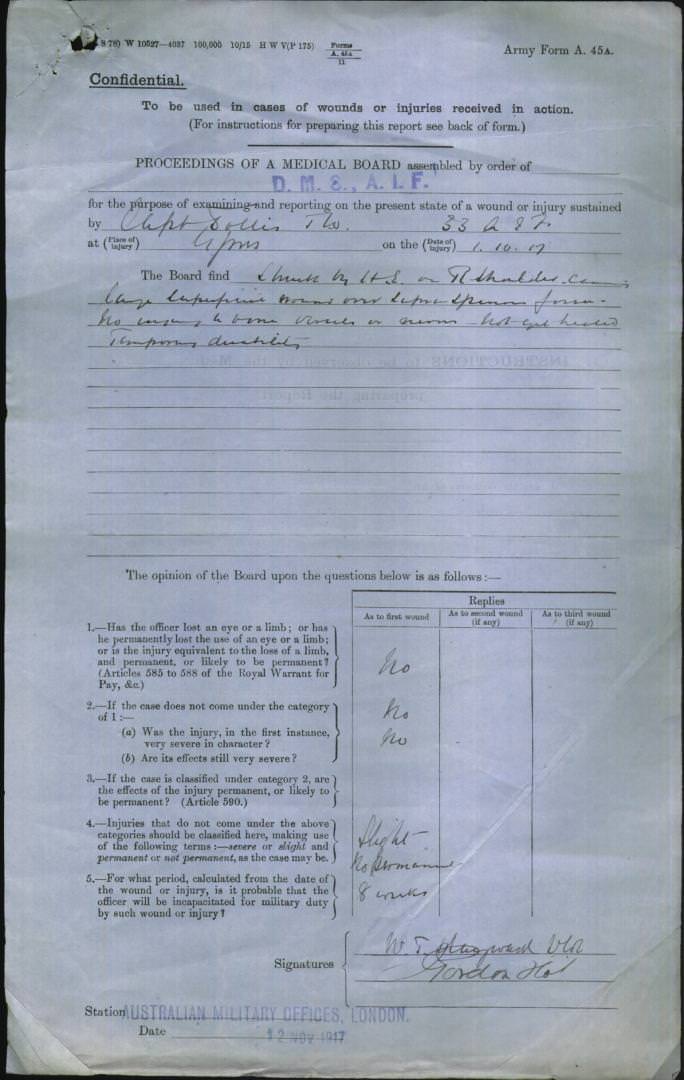 8 78) W 10527—4037 100,000 10/15 H W V(P 175)
Forms
A. 45A
11
Army Form A. 45A.
Confidential.
To be used in cases of wounds or injuries received in action.
(For instructions for preparing this report see back of form.)
PROCEEDINGS OF A MEDICAL BOARD assembled by order of
D. M. S., A. I. F.
for the purpose of examining and reporting on the present state of a wound or injury sustained
by Capt 33
at (Place of injury) Ypres on the (Date of injury) 1. 10. 17
The Board find Struck by H.E. on R shoulder
large superficial wound over supra spinous fossa.
No injury to bone vessels or nerves not yet healed
Temporary disability
The opinion of the Board upon the questions below is as follows:—
Replies
As to first wound
As to second wound (if any)
As to third wound (if any)
1.—Has the officer lost an eye or a limb; or has
he permanently lost the use of an eye or a limb;
or is the injury equivalent to the loss of a limb,
and permanent, or likely to be permanent?
(Articles 585 to 588 of the Royal Warrant for
Pay, &c.)
No
2.—If the case does not come under the category
of 1:—
No
(a) Was the injury, in the first instance,
very severe in character?
No
(b) Are its effects still very severe?
3.—If the case is classified under category 2, are
the effects of the injury permanent, or likely to
be permanent? (Article 590.)
4.—Injuries that do not come under the above
categories should be classified here, making use
of the following terms:—severe or slight and
permanent or not permanent, as the case may be.
Slight
No permanent
5.—For what period, calculated from the date of
the wound or injury, is it probable that the
officer will be incapacitated for military duty
by such wound or injury?
8 weeks
Signatures
W. T. Hayward
Gordon
Station AUSTRALIAN MILITARY OFFICES, LONDON.
Date 12 NOV 1917